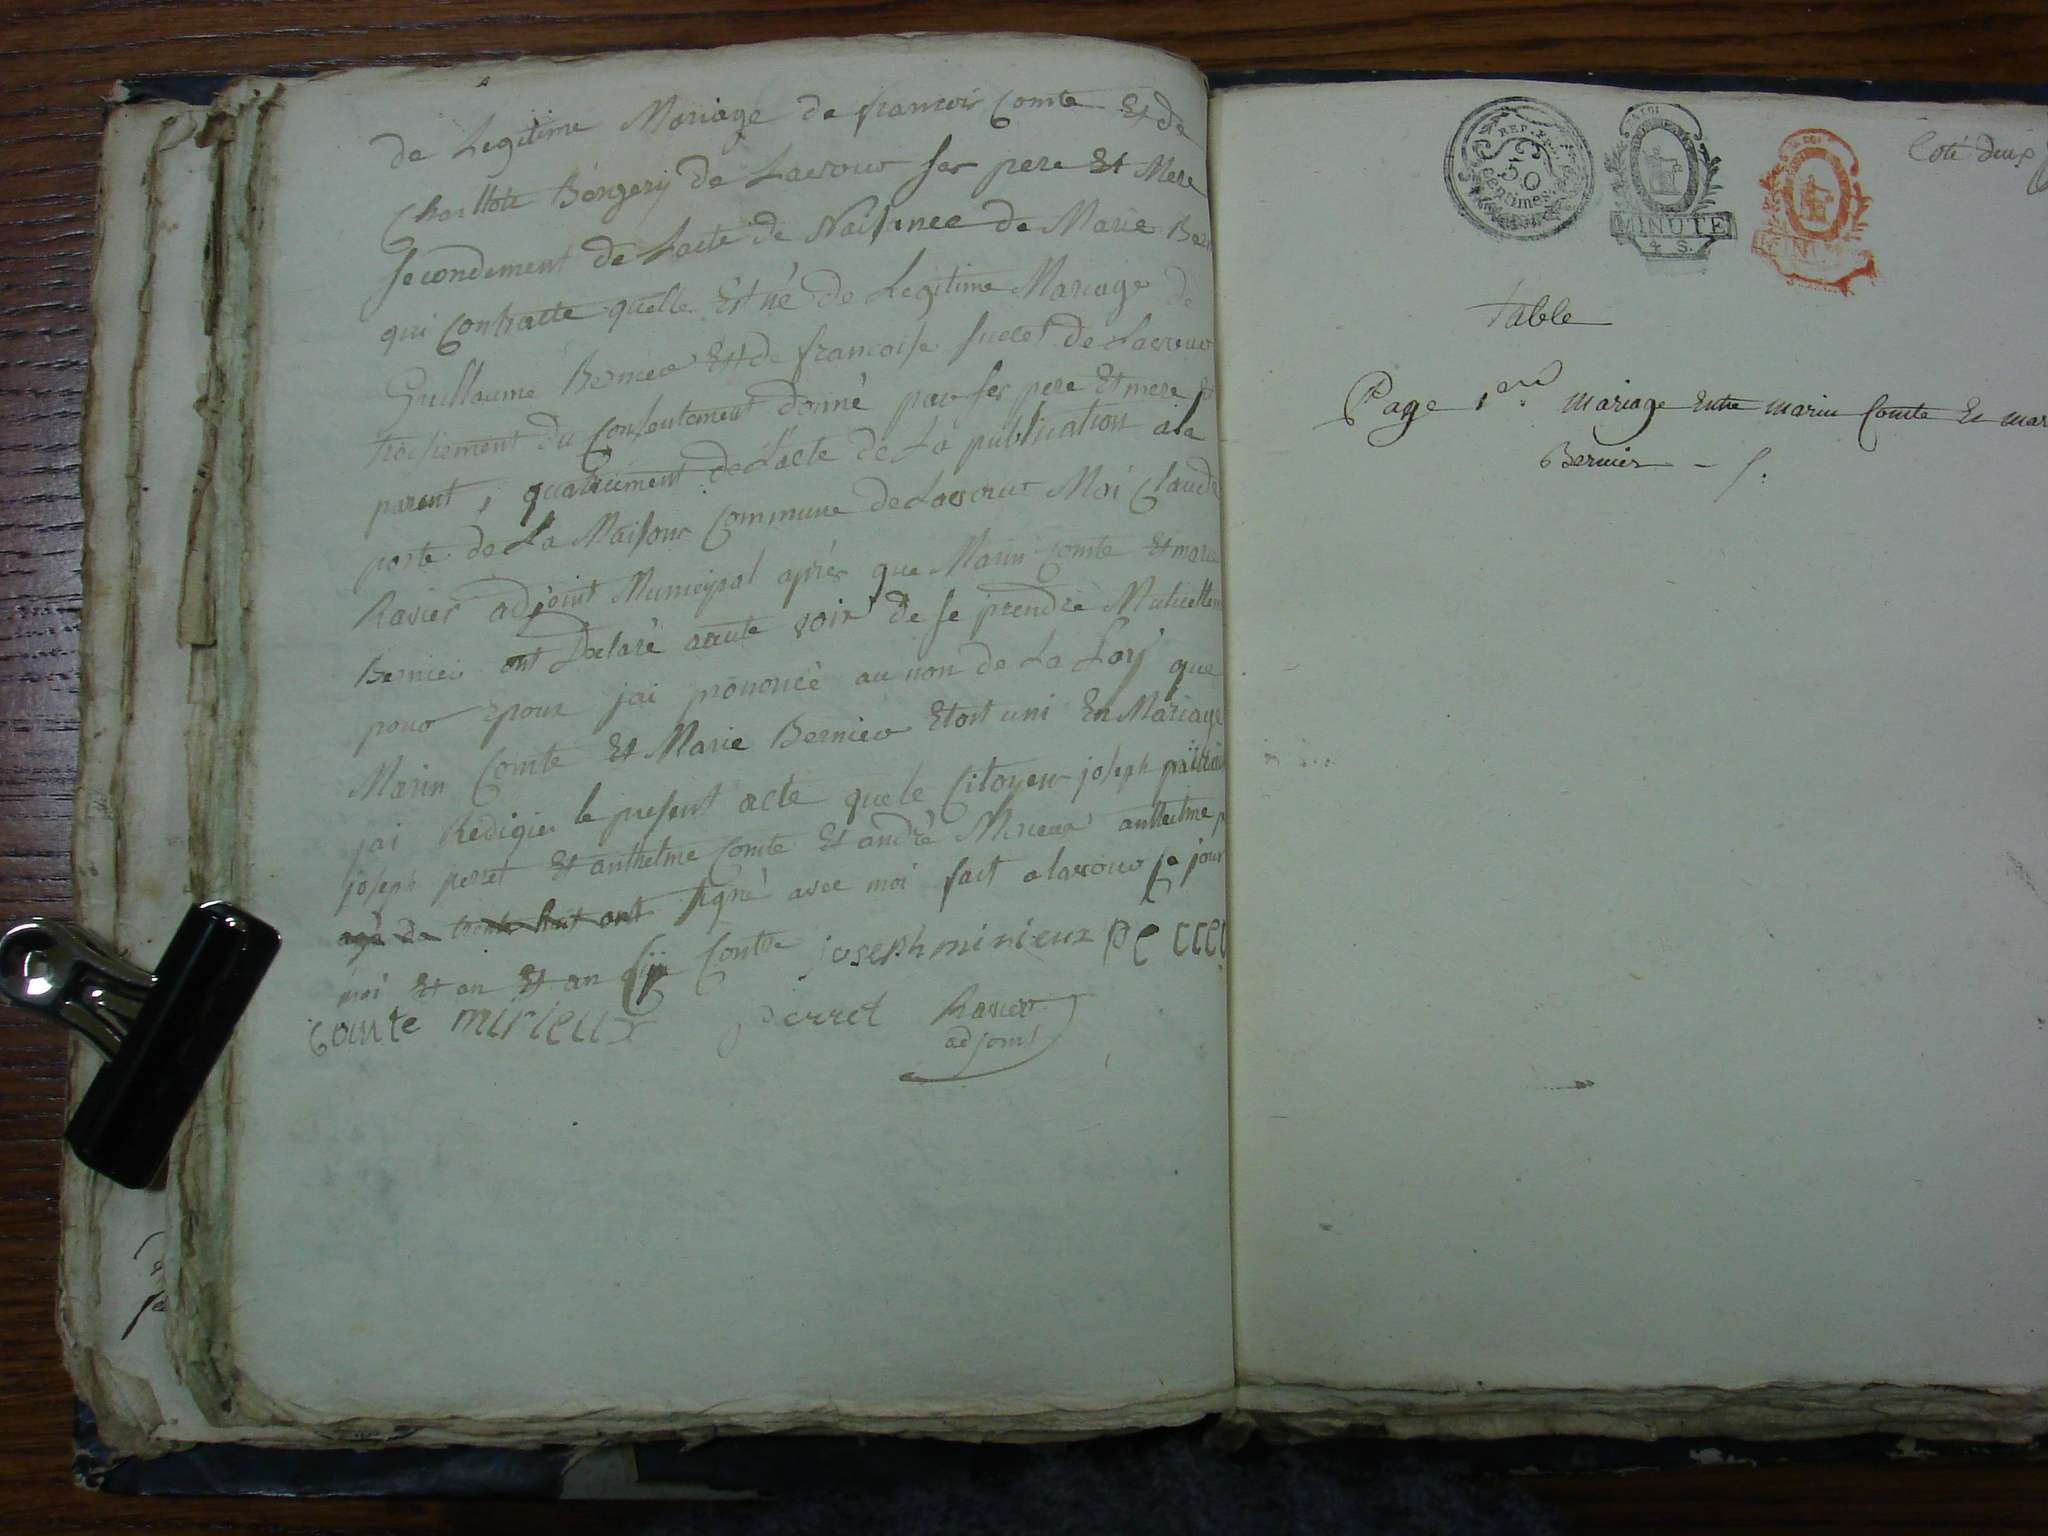 de Legitime Mariage de francois Comte Et de
Charllote Bongery de Lavour ses pere Et Mere
secondement de Lacte de Naissance de Marie Ber
qui Contratte quelle Est né de Legitime Mariage de
Guillaume Bernier Et de francoise sucet de Lavour
troisiement du Consentement donné par ses pere Et mere Et
parent, quatriement de Lacte de La publication a la
porte de La Maison Commune de Lavour Moi Claude
Ravier adjoint Municipal après que Marin Comte Et marie
Bernier ont Declaré a aute voix de se prendre Mutuellem
pour Epoux jai prononcé au non de La Loy que
Marin Comte Et Marie Bernier Etoit uni En Mariage
jai Redigier le present acte que le Citoyen joseph
joseph perret Et anthelme Comte Et andré Mirieux anthelme
agé de trente huit ont signé avec moi fait a lavour se jour
moi Et an Et an Contre joseph minieux
Comte mirieux perret Ravier
adjoint
REP. FRA.
50
centimes
LA LOI
MINUTE
4 S.
Coté deux
table
Page 1ere mariage Entre marin Comte Et mar
Bernier